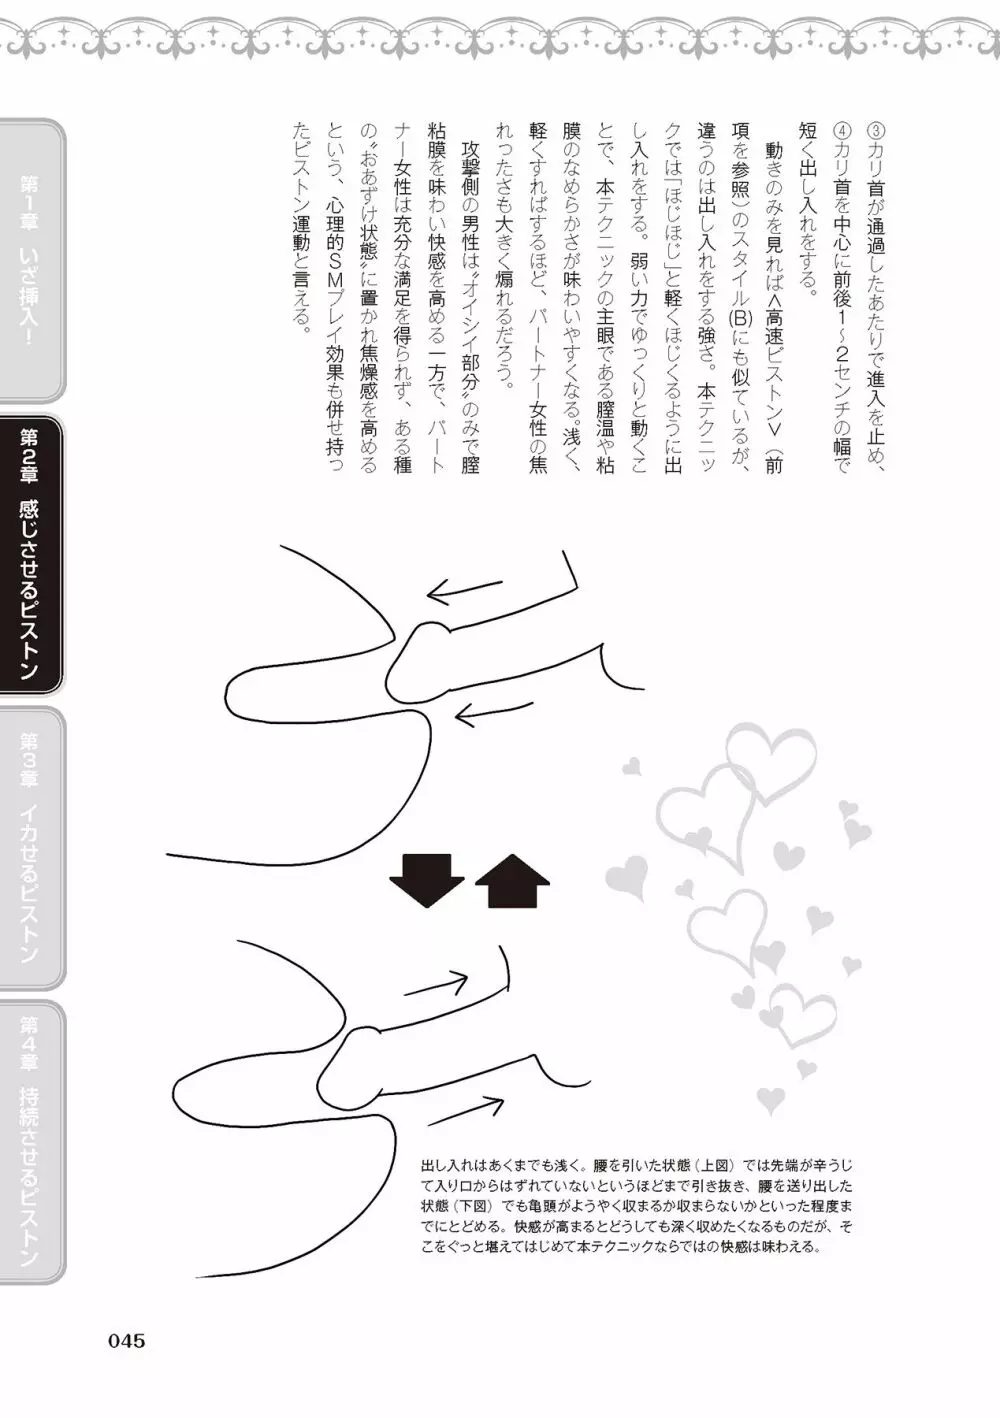 ③カリ首が通過したあたりで進入を止め、
④カリ首を中心に前後1〜2センチの幅で
短く出し入れをする。
　動きのみを見れば<高速ピストン>（前
項を参照）のスタイル(B)にも似ているが、
違うのは出し入れをする強さ。本テクニッ
クでは「ほじほじ」と軽くほじくるように出
し入れをする。弱い力でゆっくりと動くこ
とで、本テクニックの主眼である膣温や粘
膜のなめらかさが味わいやすくなる。浅く、
軽くすればするほど、パートナー女性の焦
れったさも大きく煽れるだろう。
　攻撃側の男性は“オイシイ部分”のみで膣
粘膜を味わい快感を高める一方で、パート
ナー女性は充分な満足を得られず、ある種
の“おあずけ状態”に置かれ焦燥感を高める
という、心理的SMプレイ効果も併せ持っ
たピストン運動と言える。
第1章 いざ挿入！
第2章 感じさせるピストン
第3章 イカせるピストン
第4章 持続させるピストン
出し入れはあくまでも浅く。腰を引いた状態（上図）では先端が辛うじ
て入り口からはずれていないというほどまで引き抜き、腰を送り出した
状態（下図）でも亀頭がようやく収まるか収まらないかといった程度ま
でにとどめる。快感が高まるとどうしても深く収めたくなるものだが、そ
こをぐっと堪えてはじめて本テクニックならではの快感は味わえる。
045